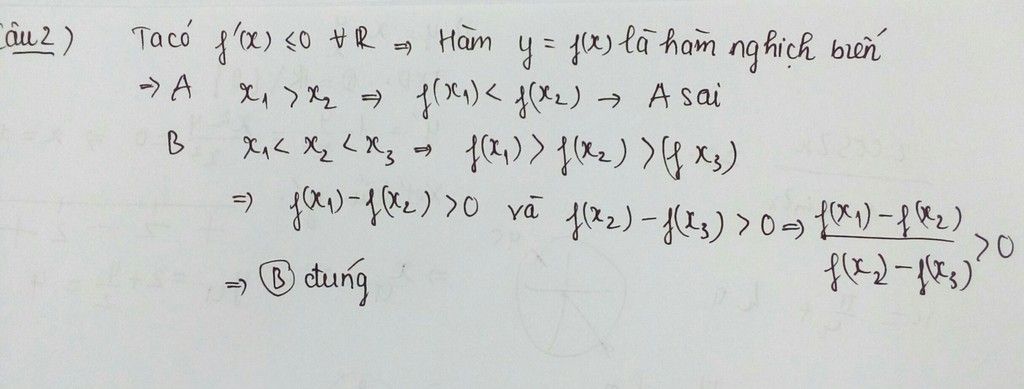 Câu 2) Ta có f'(x) ≤ 0 ∀ R ⇒ Hàm y = f(x) là hàm nghịch biến
⇒ A x₁ > x₂ ⇒ f(x₁) < f(x₂) → A sai
B x₁ < x₂ < x₃ ⇒ f(x₁) > f(x₂) > (f x₃)
⇒ f(x₁) - f(x₂) > 0 và f(x₂) - f(x₃) > 0 ⇒ \frac{f(x₁) - f(x₂)}{f(x₂) - f(x₃)} > 0
⇒ Ⓑ đúng